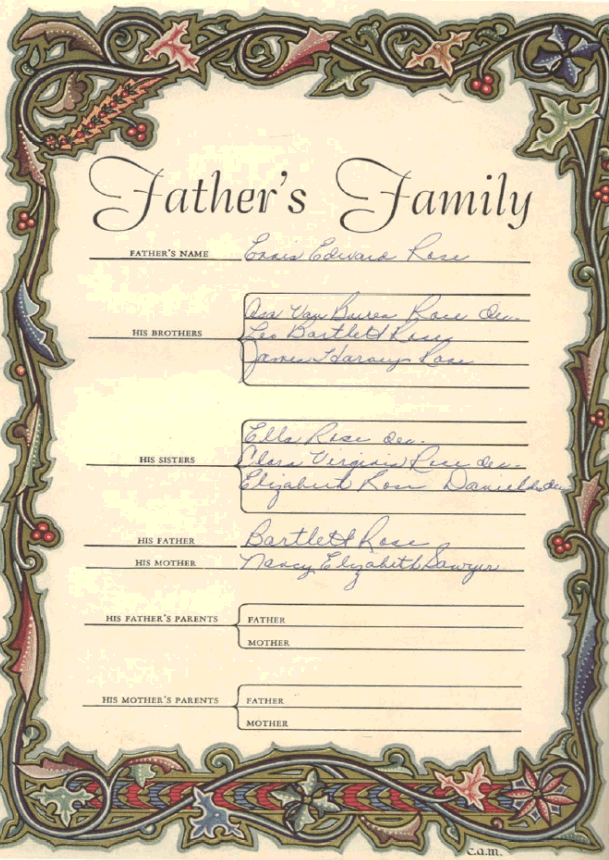 Father's Family
FATHER'S NAME Ennis Edward Rose
Asa Van Buren Rose Dec.
HIS BROTHERS Leo Bartlett Rose
James Harvey Rose
Ella Rose Dec.
HIS SISTERS Clara Virginia Rose Dec.
Elizabeth Rose Daniels Dec.
HIS FATHER Bartlett Rose
HIS MOTHER Nancy Elizabeth Sawyer
HIS FATHER'S PARENTS FATHER
MOTHER
HIS MOTHER'S PARENTS FATHER
MOTHER
C.a.m.